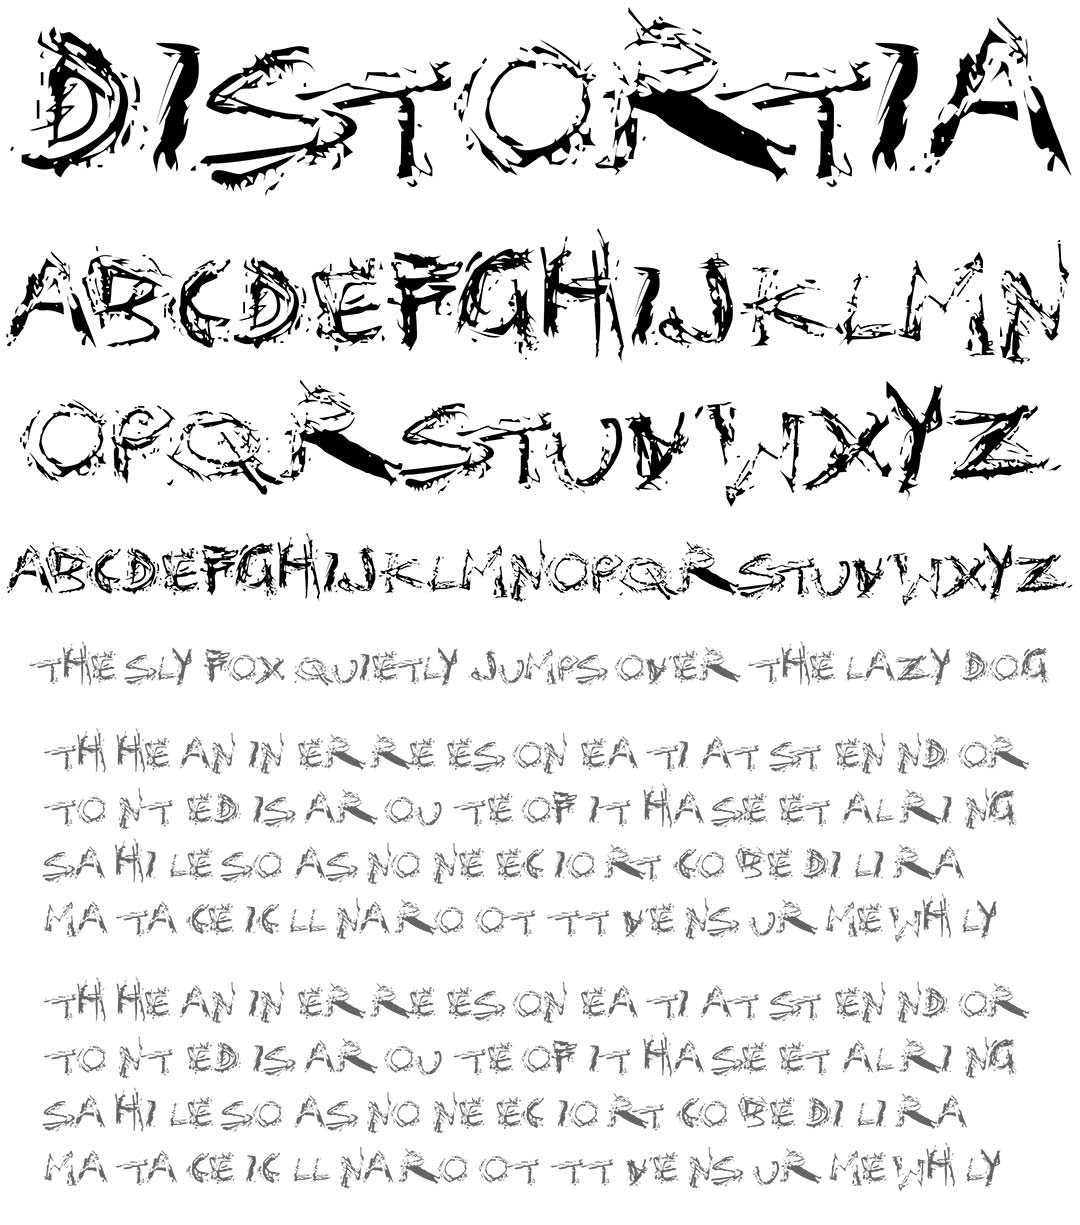 DISTORTIA
ABCDEFGHIJKLMN
OPQRSTUVWXYZ
ABCDEFGHIJKLMNOPQRSTUVWXYZ
THE SLY FOX QUIETLY JUMPS OVER THE LAZY DOG
TH HE AN IN ER RE ES ON EA TI AT ST EN ND OR
TO NT ED IS AR OU TE OF IT HA SE ET AL RI NG
SA HI LE SO AS NO NE EC IO RT CO BE DI LI RA
MA TA CE IC LL NA RO OT TT VE NS UR ME WH LY
TH HE AN IN ER RE ES ON EA TI AT ST EN ND OR
TO NT ED IS AR OU TE OF IT HA SE ET AL RI NG
SA HI LE SO AS NO NE EC IO RT CO BE DI LI RA
MA TA CE IC LL NA RO OT TT VE NS UR ME WH LY